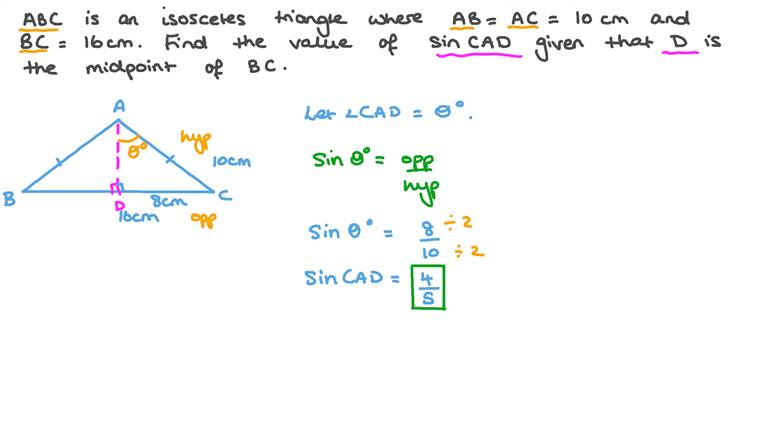 ABC is an isosceles triangle where AB = AC = 10 cm and
BC = 16cm. Find the value of sin CAD given that D is
the midpoint of BC.
A
θ°
hyp
10cm
B
D
8cm
C
16cm
opp
Let ∠CAD = θ°.
Sin θ° = opp
hyp
Sin θ° = 8 ÷ 2
10 ÷ 2
Sin CAD = 4
5